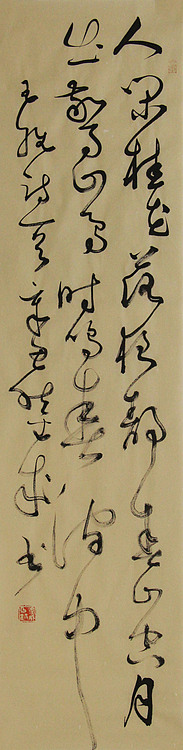 人闲桂花落夜静春山空月
出惊山鸟时鸣春涧中
王维诗一首辛丑
书